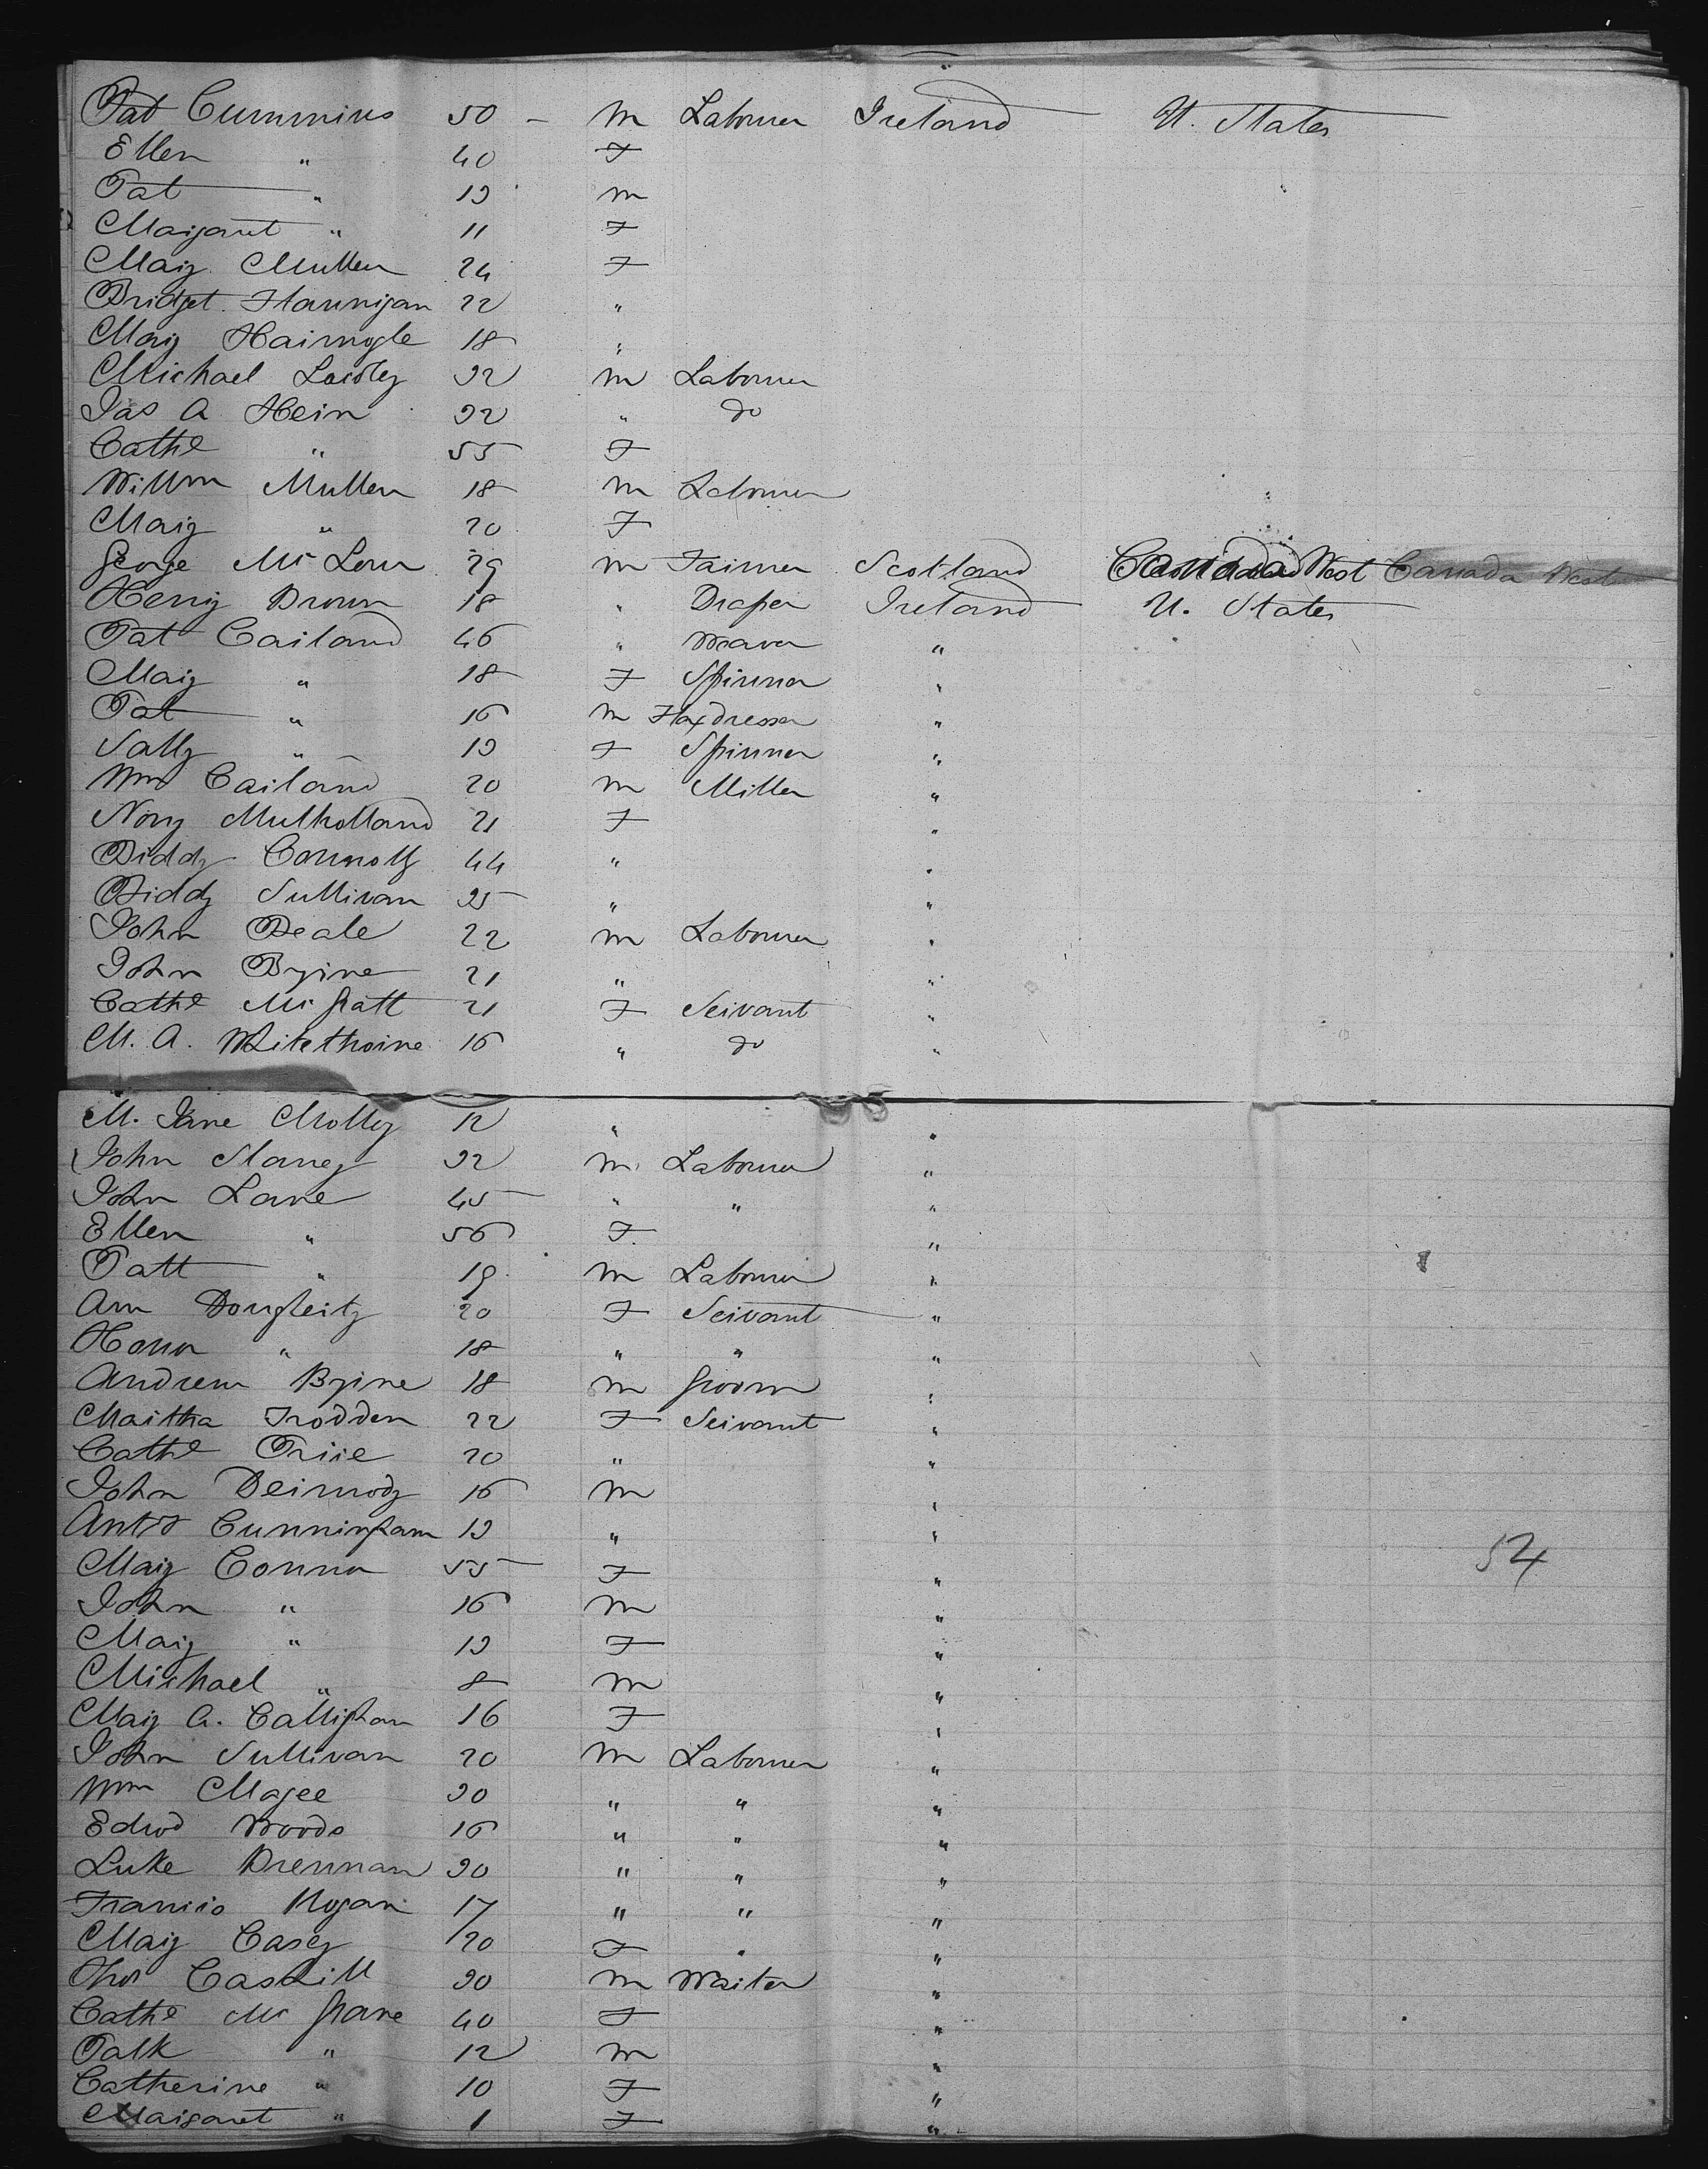 Pat Cummins 50 - M Labourer Ireland U. States
Ellen " 40 F
Pat " 13 M
Margaret " 11 F
Mary Mullen 24 F
Bridget Flannigan 22 "
Mary 18 "
Michael 32 M Labourer
Jas A Hein 32 " do
Cathe " 55 F
Willm Mullen 18 M Labourer
Mary " 20 F
George 29 M Farmer Scotland Canada West Canada West
Henry Brown 18 " Draper Ireland U. States
Pat Carland 46 " Weaver "
Mary " 18 F Spinner "
Pat " 16 M Flaxdresser "
Sally " 13 F Spinner "
Wm Carland 20 M Miller "
Nory Mulholland 21 F "
Biddy Connolly 44 " "
Biddy Sullivan 35 " "
John Beale 22 M Labourer "
John Byrne 21 " "
Cathe McGratt 21 F Servant "
M. A. Whitethorne 16 " do "
M. Jane Molly 12 " "
John Slaney 32 M Labourer "
John Lane 45 " " "
Ellen " 56 F "
Patt " 19 M Labourer "
Ann Dougherty 20 F Servant "
Honor " 18 " " "
Andrew Byrne 18 M Groom "
Martha Trodden 22 F Servant "
Cathe Price 20 " "
John Dermody 16 M "
Anty Cunningham 13 " "
Mary Connor 55 F "
John " 16 M "
Mary " 13 F "
Michael " 8 M "
Mary A. Callighan 16 F "
John Sullivan 20 M Labourer "
Wm Magee 30 " " "
Edwd Woods 16 " " "
Luke Drennan 30 " " "
Francis Hogan 17 " " "
Mary Casey 20 F " "
Thos Caskill 30 M Waiter "
Cathe McGrane 40 F "
Patk " 12 M "
Catherine " 10 F "
Margaret " 1 F "
54